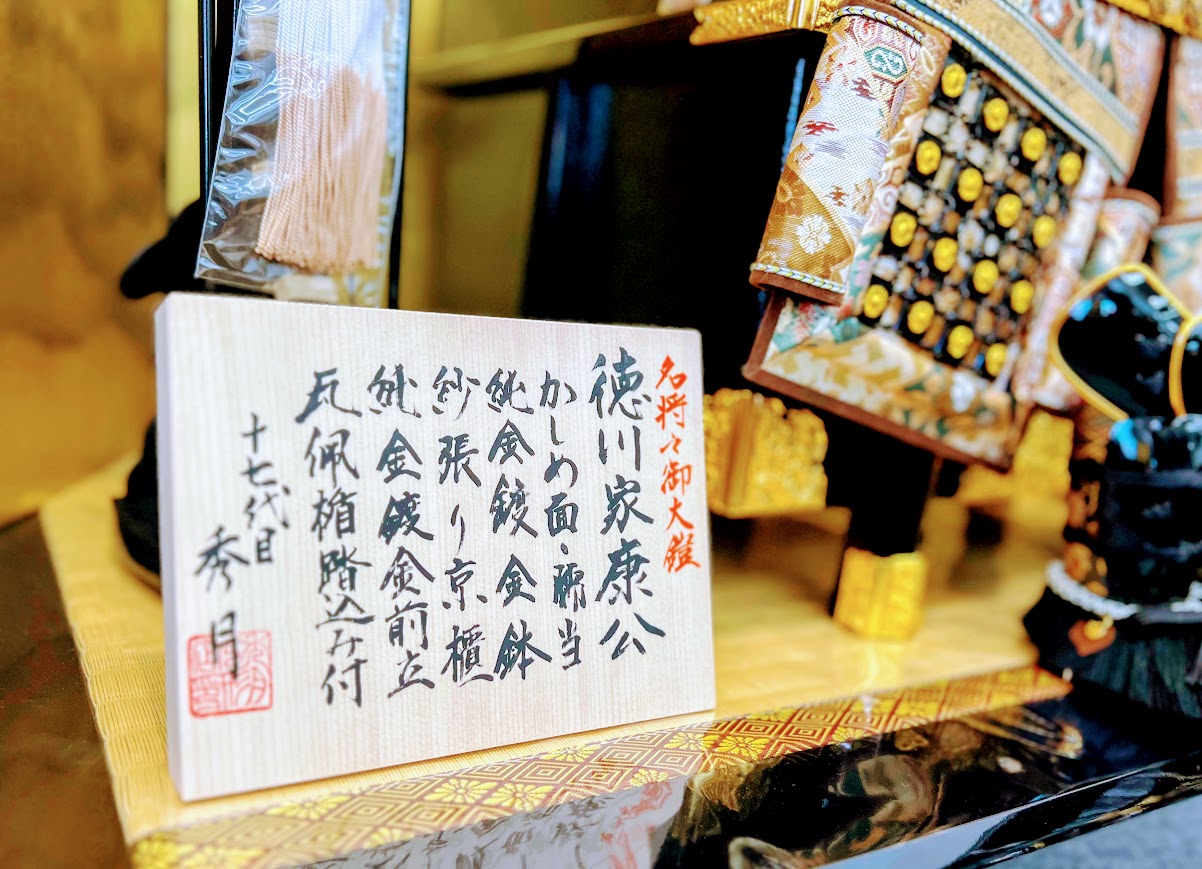 名将々御大鎧
徳川家康公
かしめ面・臑当
純金鍍金鉢
紗張り京櫃
純金鍍金前立
瓦佩楯踏込み付
十七代目
秀月